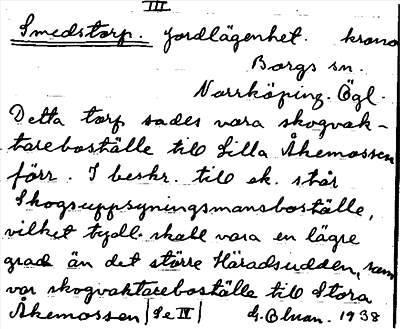 III
Smedstorp. Jordlägenhet. krono
Borgs sn.
Norrköping. Ögl.
Detta torp sades vara skogvak-
tareboställe till Lilla Åkemossen
förr. I beskr. till ek. står
Skogsuppsyningsmansboställe,
vilket tydl. skall vara en lägre
grad än det större Häradsudden, som
var skogvaktareboställe till Stora
Åkemossen (Se IV) 1938